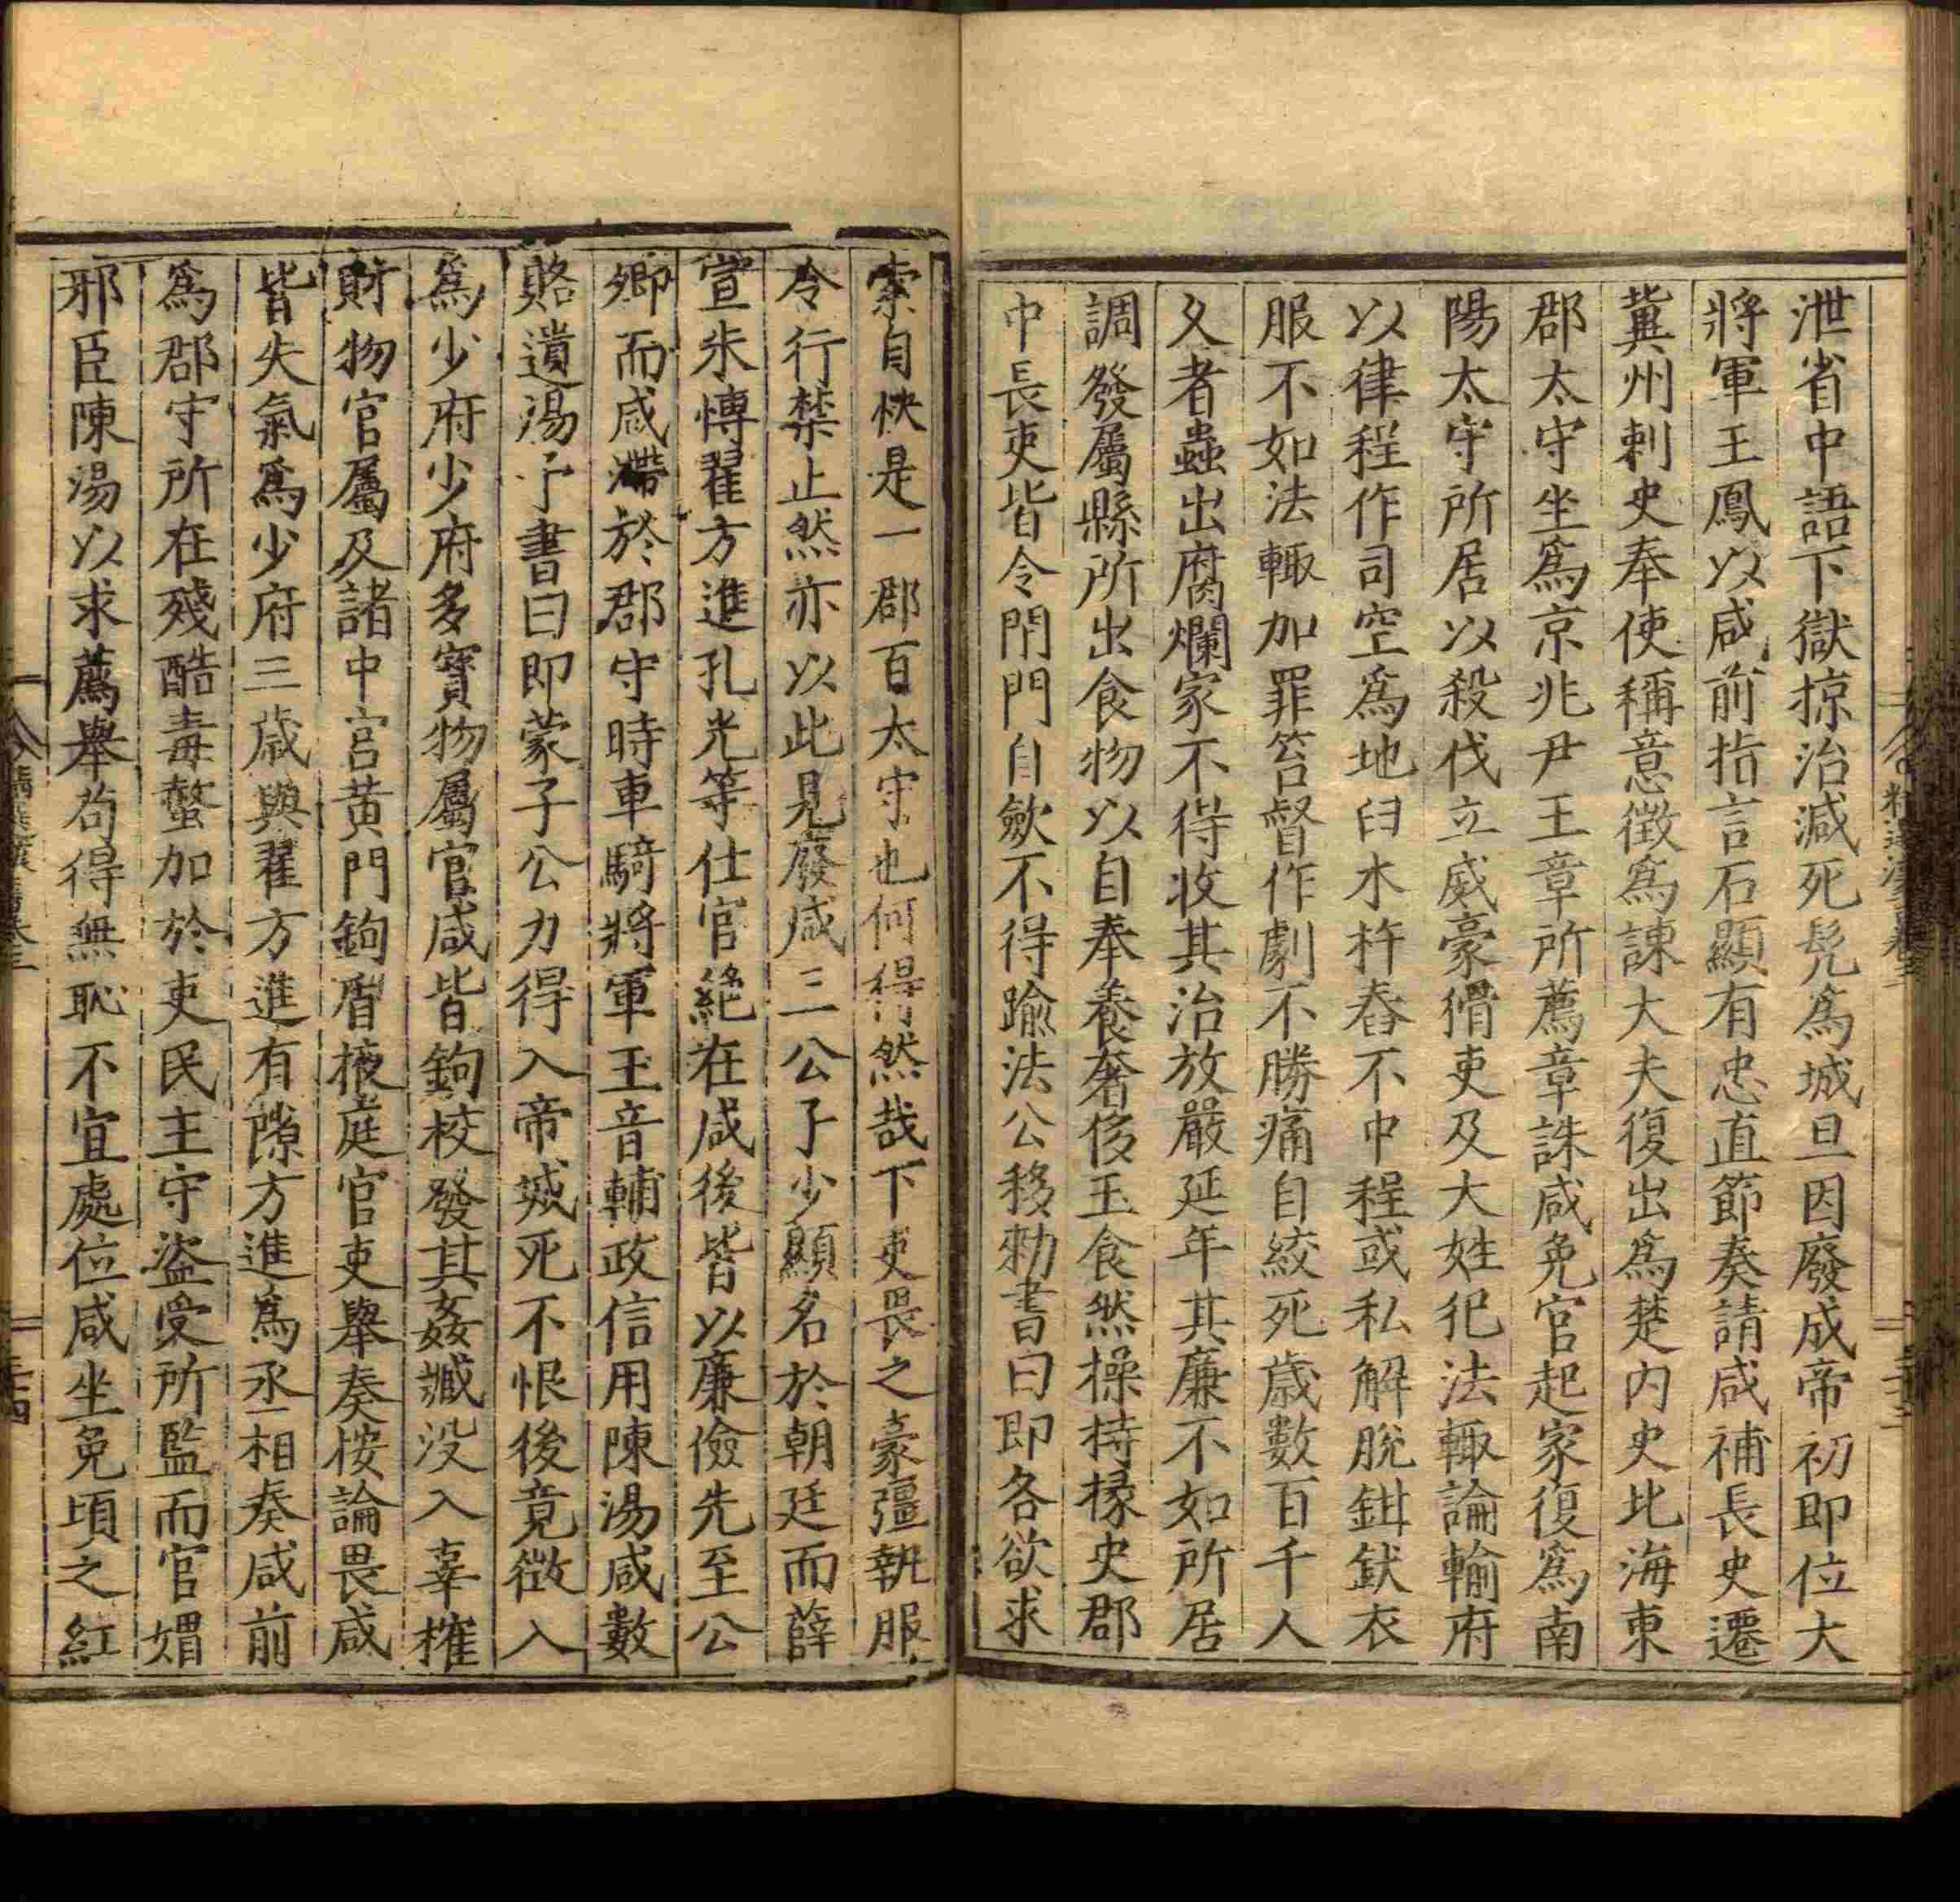 泄省中語下獄掠治減死髡爲城旦因廢成帝初即位大
將軍王鳳以咸前指言石顯有忠直節奏請咸補長史遷
冀州刺史奉使稱意徵爲諫大夫復出爲楚内史北海東
郡太守坐爲京兆尹王章所薦章誅咸免官起家復爲南
陽太守所居以殺伐立威豪猾吏及大姓犯法輒論輸府
以律程作司空爲地臼木杵舂不中程或私解脫鉗釱衣
服不如法輒加罪笞督作劇不勝痛自絞死歲數百千人
乆者蟲出腐爛家不得收其治放嚴延年其廉不如所居
調發屬縣所出食物以自奉養奢侈玉食然操持掾史郡
中長吏皆令閉門自歛不得踰法公移勑書曰即各欲求
索自快是一郡百太守也何得然哉下吏畏之豪彊執服
令行禁止然亦以此見廢咸三公子少顯名於朝廷而薛
宣朱愽翟方進孔光等仕官絶在咸後皆以廉儉先至公
卿而咸滯於郡守時車騎將軍王音輔政信用陳湯咸數
賂遺湯予書曰即蒙子公力得入帝城死不恨後竟徴入
爲少府少府多寶物屬官咸皆鉤校發其姦贓没入辜榷
財物官屬及諸中宫黄門鉤盾掖庭官吏舉奏按論畏咸
皆失氣爲少府三歲與翟方進有隙方進爲丞相奏咸前
爲郡守所在殘酷毒螫加於吏民主守盜受所監而官媚
邪臣陳湯以求薦舉苟得無恥不宜處位咸坐免頃之紅